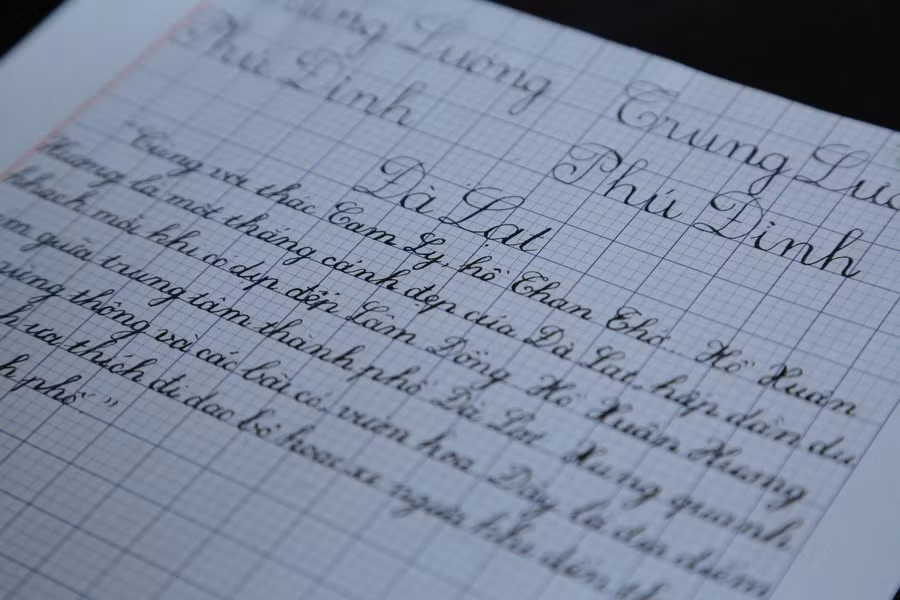 Lương Trung Lươ
Phú Định Phú Định
Đà Lạt
"Cùng với thác Cam Ly, hồ Than Thở.. Hồ Xuân
Hương là một thắng cảnh đẹp của Đà Lạt, hấp dẫn du
khách mỗi khi có dịp đến Lâm Đồng. Hồ Xuân Hương
nằm giữa trung tâm thành phố Đà Lạt. Xung quanh
rừng thông và các bãi cỏ, vườn hoa. Đây là địa điểm
ưa thích đi dạo bộ hoặc xe ngựa khi đến
phố."